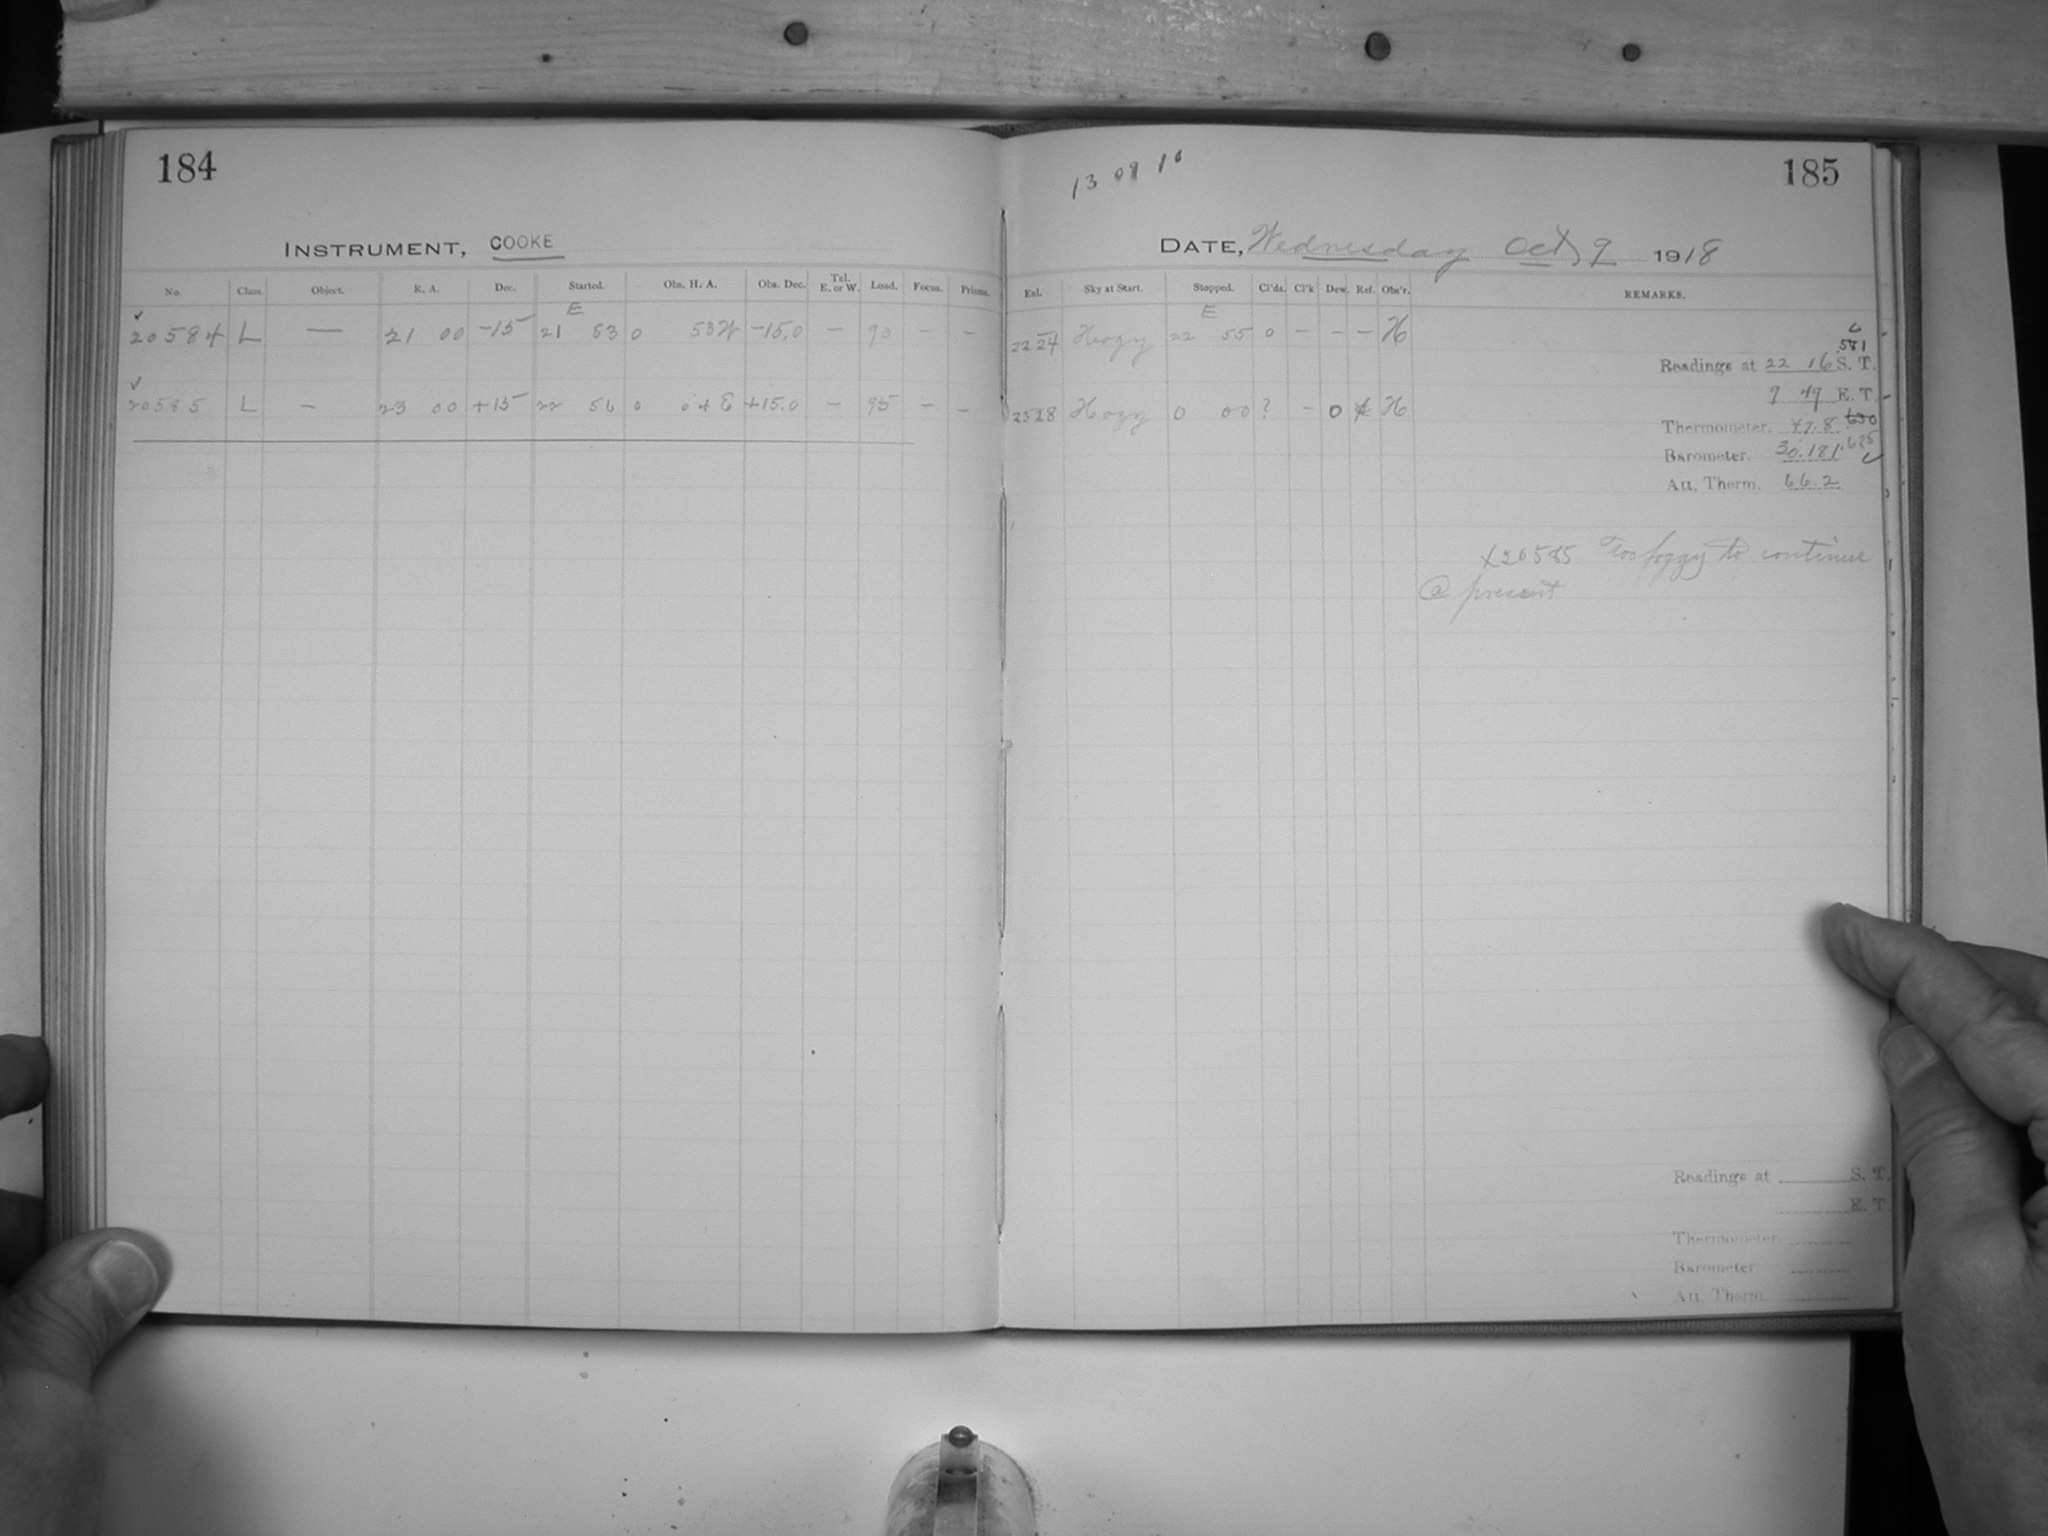 184
INSTRUMENT, COOKE
No. Class Object. R. A. Dec. Started. Obs. H. A. Obs. Dec. Tel. E. or W. Load. Focus. Prisms.
E
✓
20584 L — 21 00 -15 21 53 0 53W -15.0 — 90 — —
✓
20585 L — 23 00 +15 22 56 0 04 E +15.0 — 95 — —
185
13 09 10
DATE, Wednesday Oct 9 1918
Exl. Sky at Start. Stopped. Cl'ds. Cl'k Dew. Ref. Obs'r. REMARKS.
E
22 24 Hazy 22 55 0 — — — H
23 28 Hazy 0 00 ? — 0 H
.581
Readings at 22 16 S. T.
9 49 E. T.
Thermometer. 47.8
Barometer. 30.181 .625
Att. Therm. 66.2
X20585 Too foggy to continue
@ present
Readings at S. T.
E. T.
Thermometer.
Barometer.
Att. Therm.